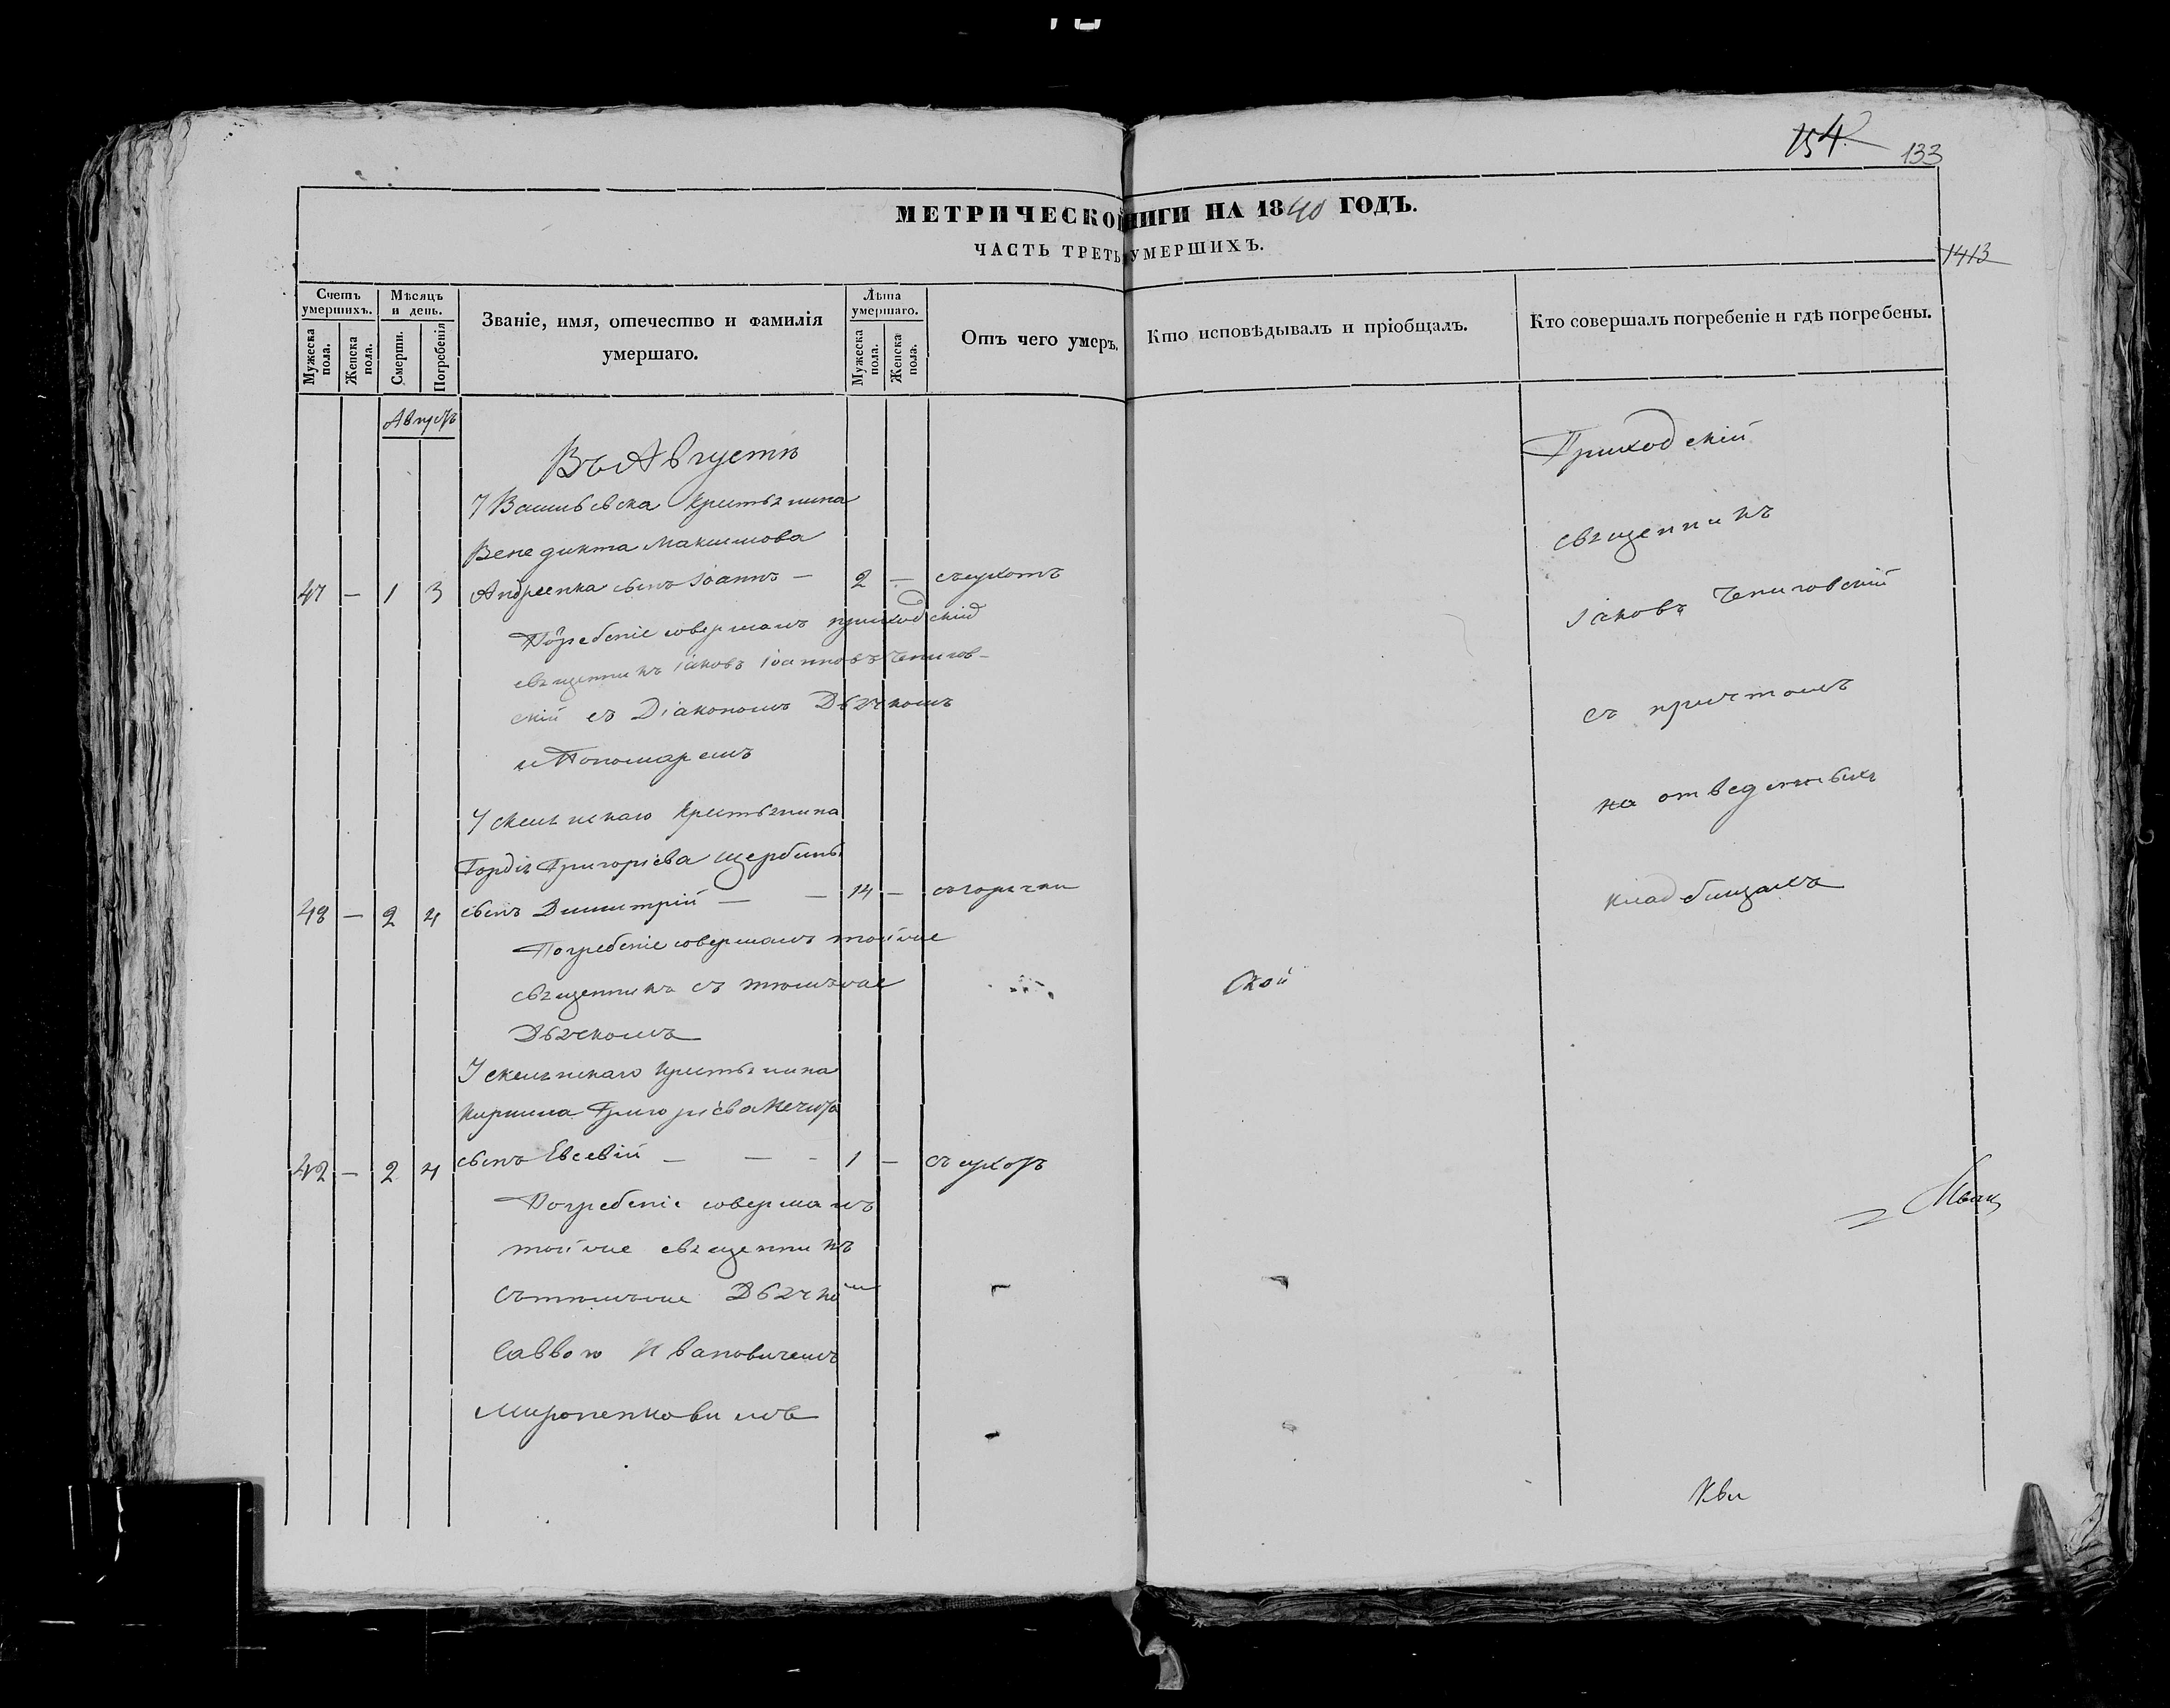 154.
133
МЕТРИЧЕСКОЙ НИГИ НА 1840 ГОДЪ.
ЧАСТЬ ТРЕТЬ УМЕРШИХЪ.
1413
Счетъ умершихъ.
Мужеска пола.
Женска пола.
Мѣсяцъ и день.
Смерти.
Погребенія
Званіе, имя, отечество и фамилія
умершаго.
Лѣта умершаго.
Мужеска пола.
Женска пола.
Отъ чего умеръ.
Кто исповѣдывалъ и пріобщалъ.
Кто совершалъ погребеніе и гдѣ погребены.
Августъ
Въ Августѣ
У Крестьянина
Венедикта Максимова
47 — 1 3 Андреенка сынъ Іоаннъ — 2 — сухотъ
Погребеніе совершалъ приходскій
священникъ Іаковъ Іоанновъ Чепигов-
скій съ Діакономъ Дьячкомъ
и Пономаремъ
У Крестьянина
Гордія Григоріева Щербины
48 — 2 4 сынъ Димитрій — — 14 — съ горячки
Погребеніе совершалъ тойже
священникъ съ темъже
Дьячкомъ
У Крестьянина
Кирилла Григоріева
42 — 2 4 сынъ Евсевій — — - 1 — съ сухотъ
Погребеніе совершалъ
тойже священникъ
съ темъже Дьячкомъ
Саввою Ивановичемъ
Мироненковимъ
Приходскій
священникъ
Іаковъ Чепиговскій
съ причтомъ
на отведенныхъ
кладбищахъ
ской